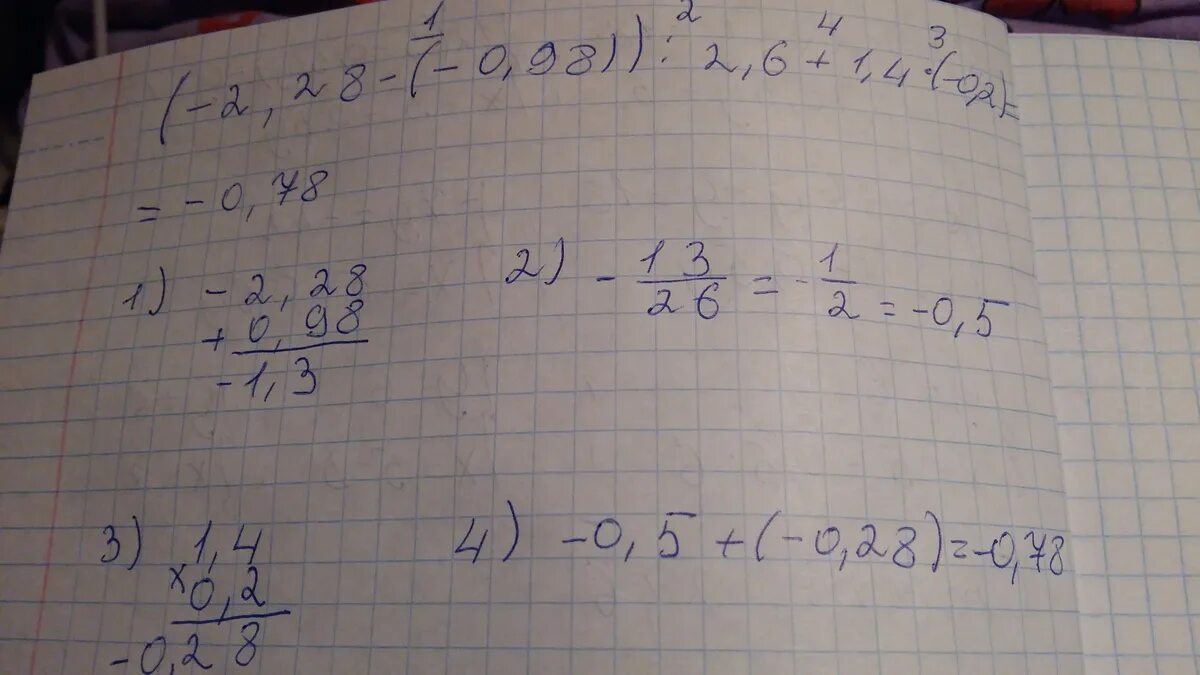 1 2 4 3
(-2,28-(-0,98)):2,6+1,4·(-0,2)=
=-0,78
1) -2,28
+0,98
-1,3
2) -13/26=-1/2=-0,5
3) 1,4
x0,2
-0,28
4) -0,5+(-0,28)=-0,78